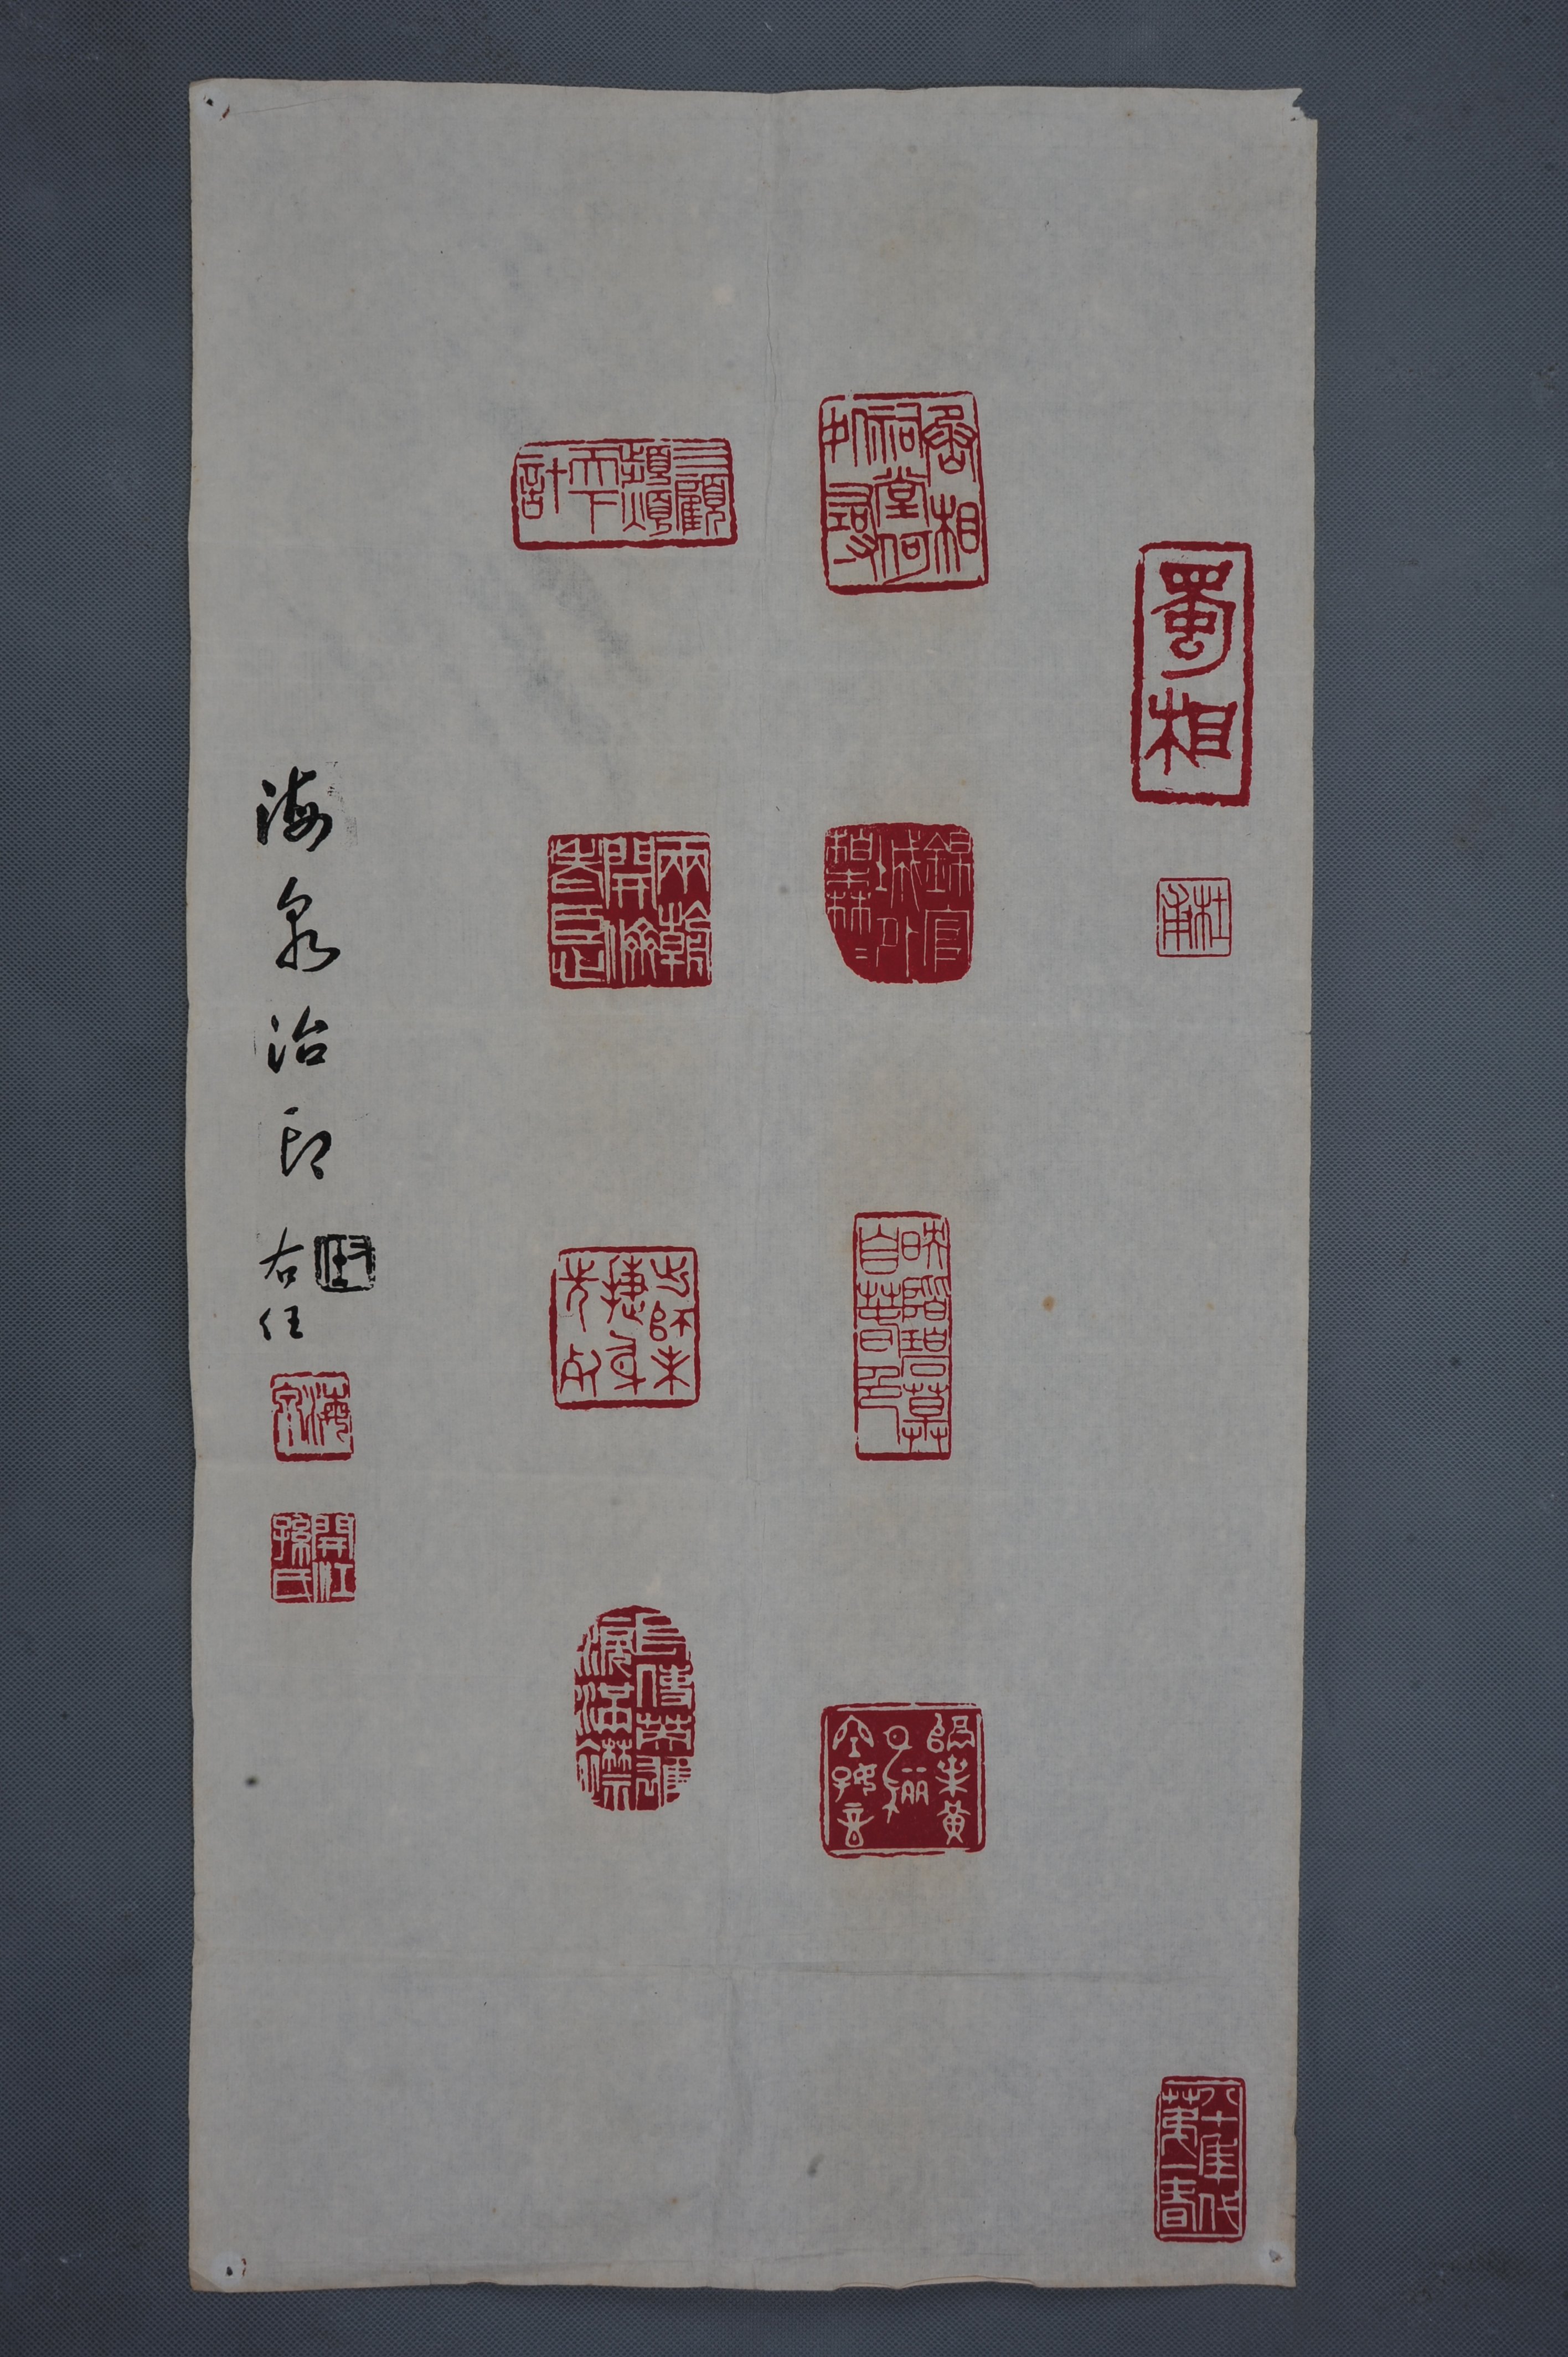 蜀相
杜甫
八十年代第一春
丞相祠堂何処尋
錦官城外柏森森
映階碧草自春色
隔葉黃鸝空好音
三顧頻煩天下計
兩朝開濟老臣心
出師未捷身先死
長使英雄淚滿襟
海泉治印
右任
右任
海泉
開江孫氏